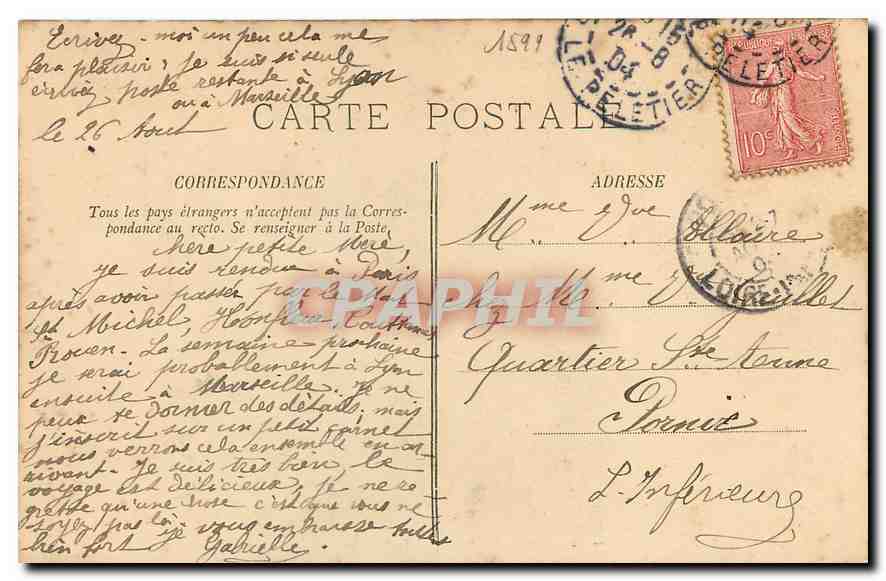 Ecrivez-moi un peu cela me
fera plaisir; je suis si seule
écrivez poste restante à Lyon
ou à Marseille
le 26 Aout
1599
26 -8
04
LE PELETIER
PELETIER
10c
CARTE POSTALE
CORRESPONDANCE
Tous les pays étrangers n'acceptent pas la Corres-
pondance au recto. Se renseigner à la Poste.
chère petite Mère,
je suis rendue à Paris
après avoir passer par le
St Michel, Honfleur,
Rouen. La semaine prochaine
je serai probablement à Lyon
ensuite à Marseille. je ne
peux te donner des détails, mais
j'inscrit sur un petit carnet
nous verrons cela ensemble en ar-
rivant. Je suis très bien, le
voyage est délicieux, je ne re-
grette qu'une chose c'est que vous ne
soyez pas là. je vous embrasse toutes
bien fort Gabrielle.
ADRESSE
Mme Vve Allaire
chz Mme
Quartier Ste Anne
Pornic
L-Inférieure
LOIRE
CPAPHIL